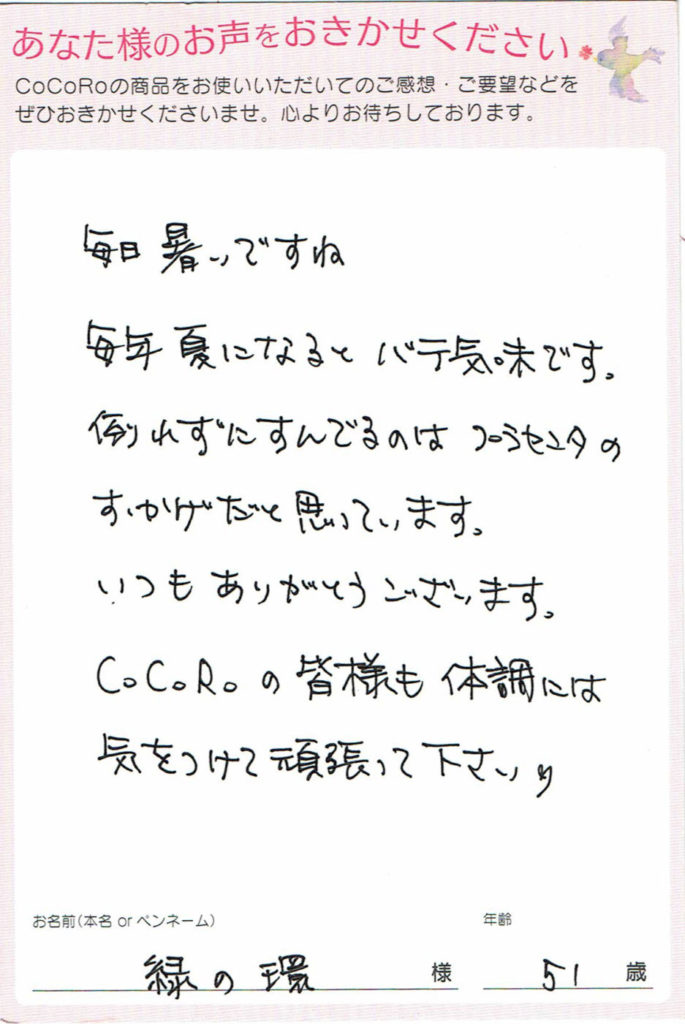 あなた様のお声をおきかせください
CoCoRoの商品をお使いいただいてのご感想・ご要望などを
ぜひおきかせくださいませ。心よりお待ちしております。
毎日 暑いですね
毎年 夏になると バテ気味です。
倒れずにすんでるのは プラセンタの
おかげだと思っています。
いつも ありがとうございます。
CoCoRoの皆様も 体調には
気をつけて 頑張って下さい
お名前(本名 or ペンネーム)
年齢
緑の環 様
51 歳